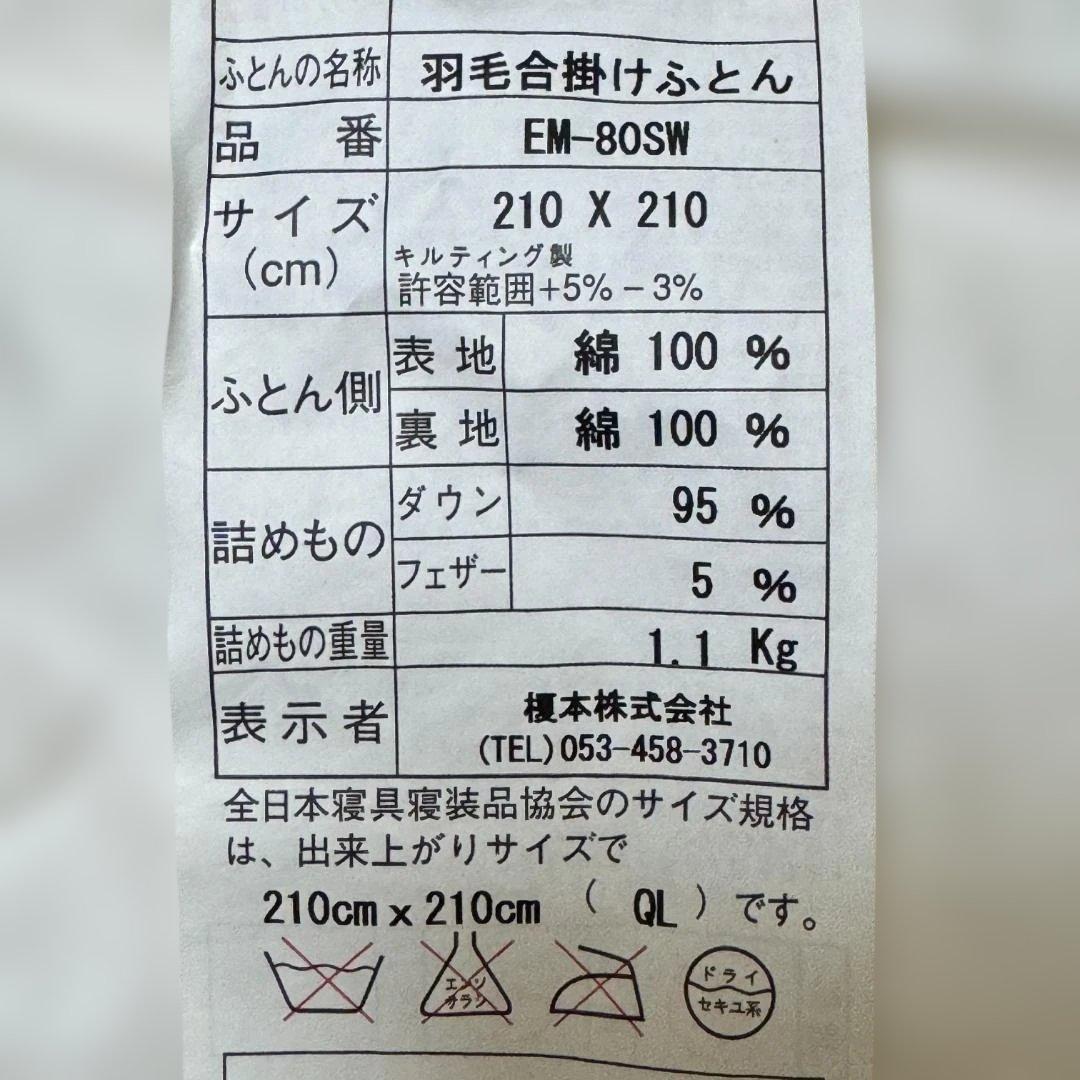 ふとんの名称 羽毛合掛けふとん
品番 EM-80SW
サイズ 210 X 210
(cm) キルティング製
許容範囲+5% －3%
ふとん側 表地 綿 100 %
裏地 綿 100 %
詰めもの ダウン 95 %
フェザー 5 %
詰めもの重量 1.1 Kg
表示者 榎本株式会社
(TEL)053-458-3710
全日本寝具寝装品協会のサイズ規格
は、出来上がりサイズで
210cm x 210cm （ QL ）です。
エンソ ドライ
サラシ セキユ系